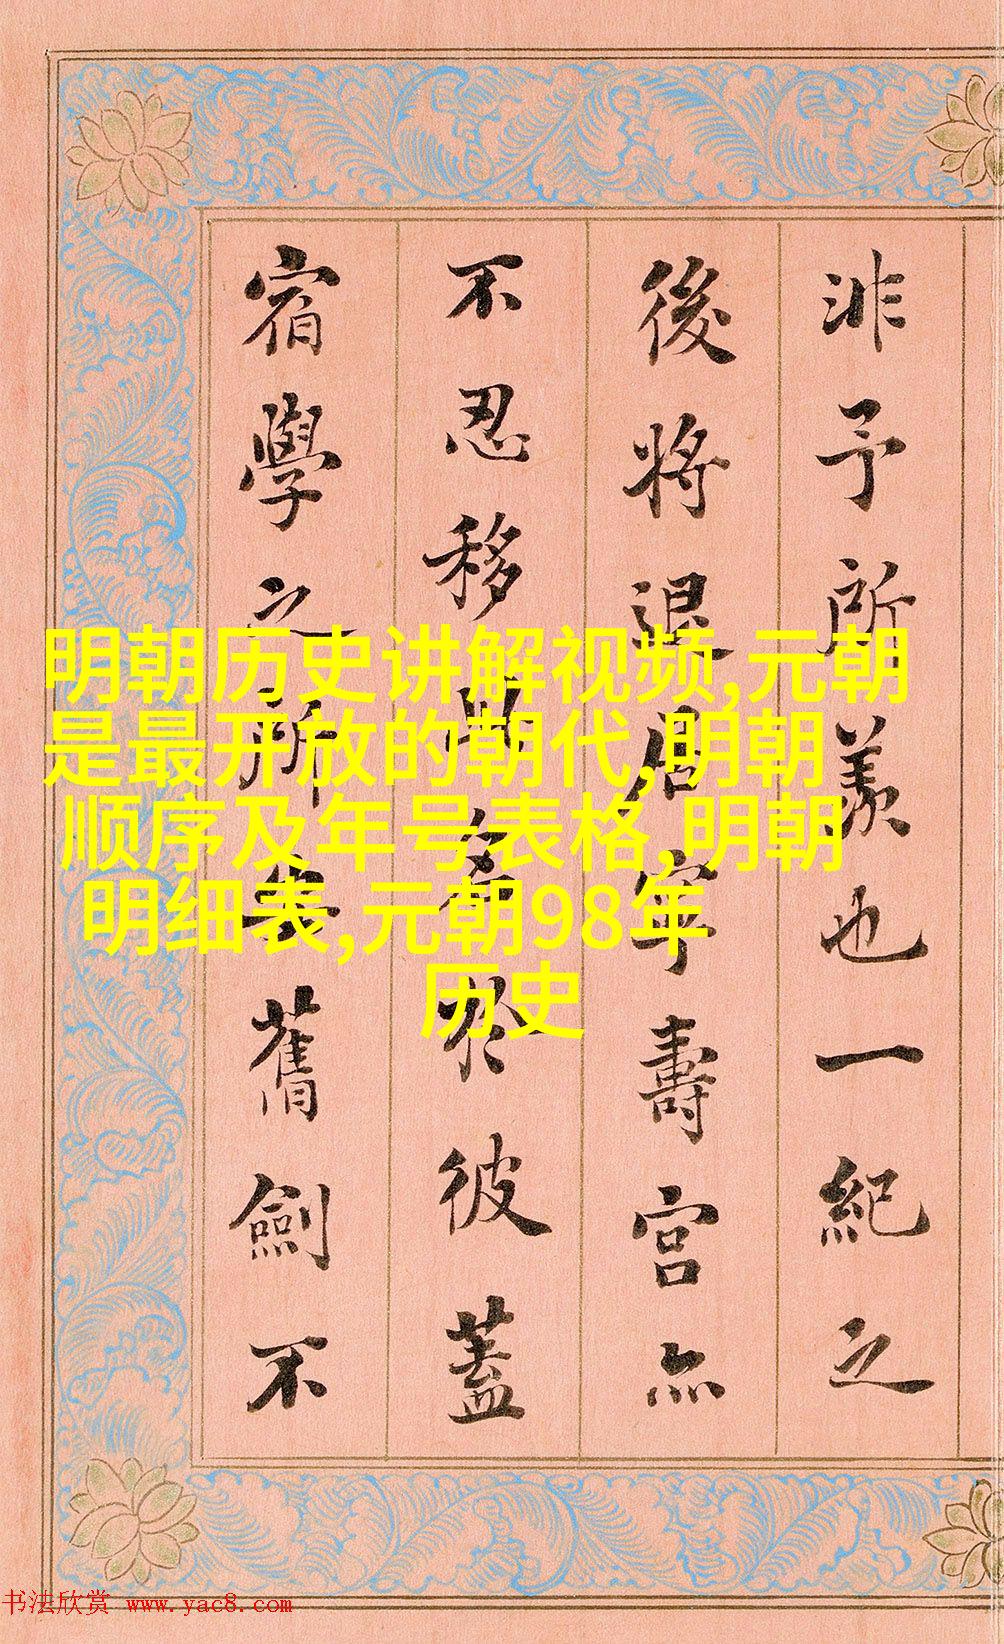 非予所羨也一紀之
後將退居寧壽宮亦
不忍移 於彼蓋
宿學之所 舊劍不
明朝历史讲解视频,元朝
是最开放的朝代,明朝
顺序及年号表格,明朝
明细表,元朝98年
历史
书法欣赏 www.yac8.com